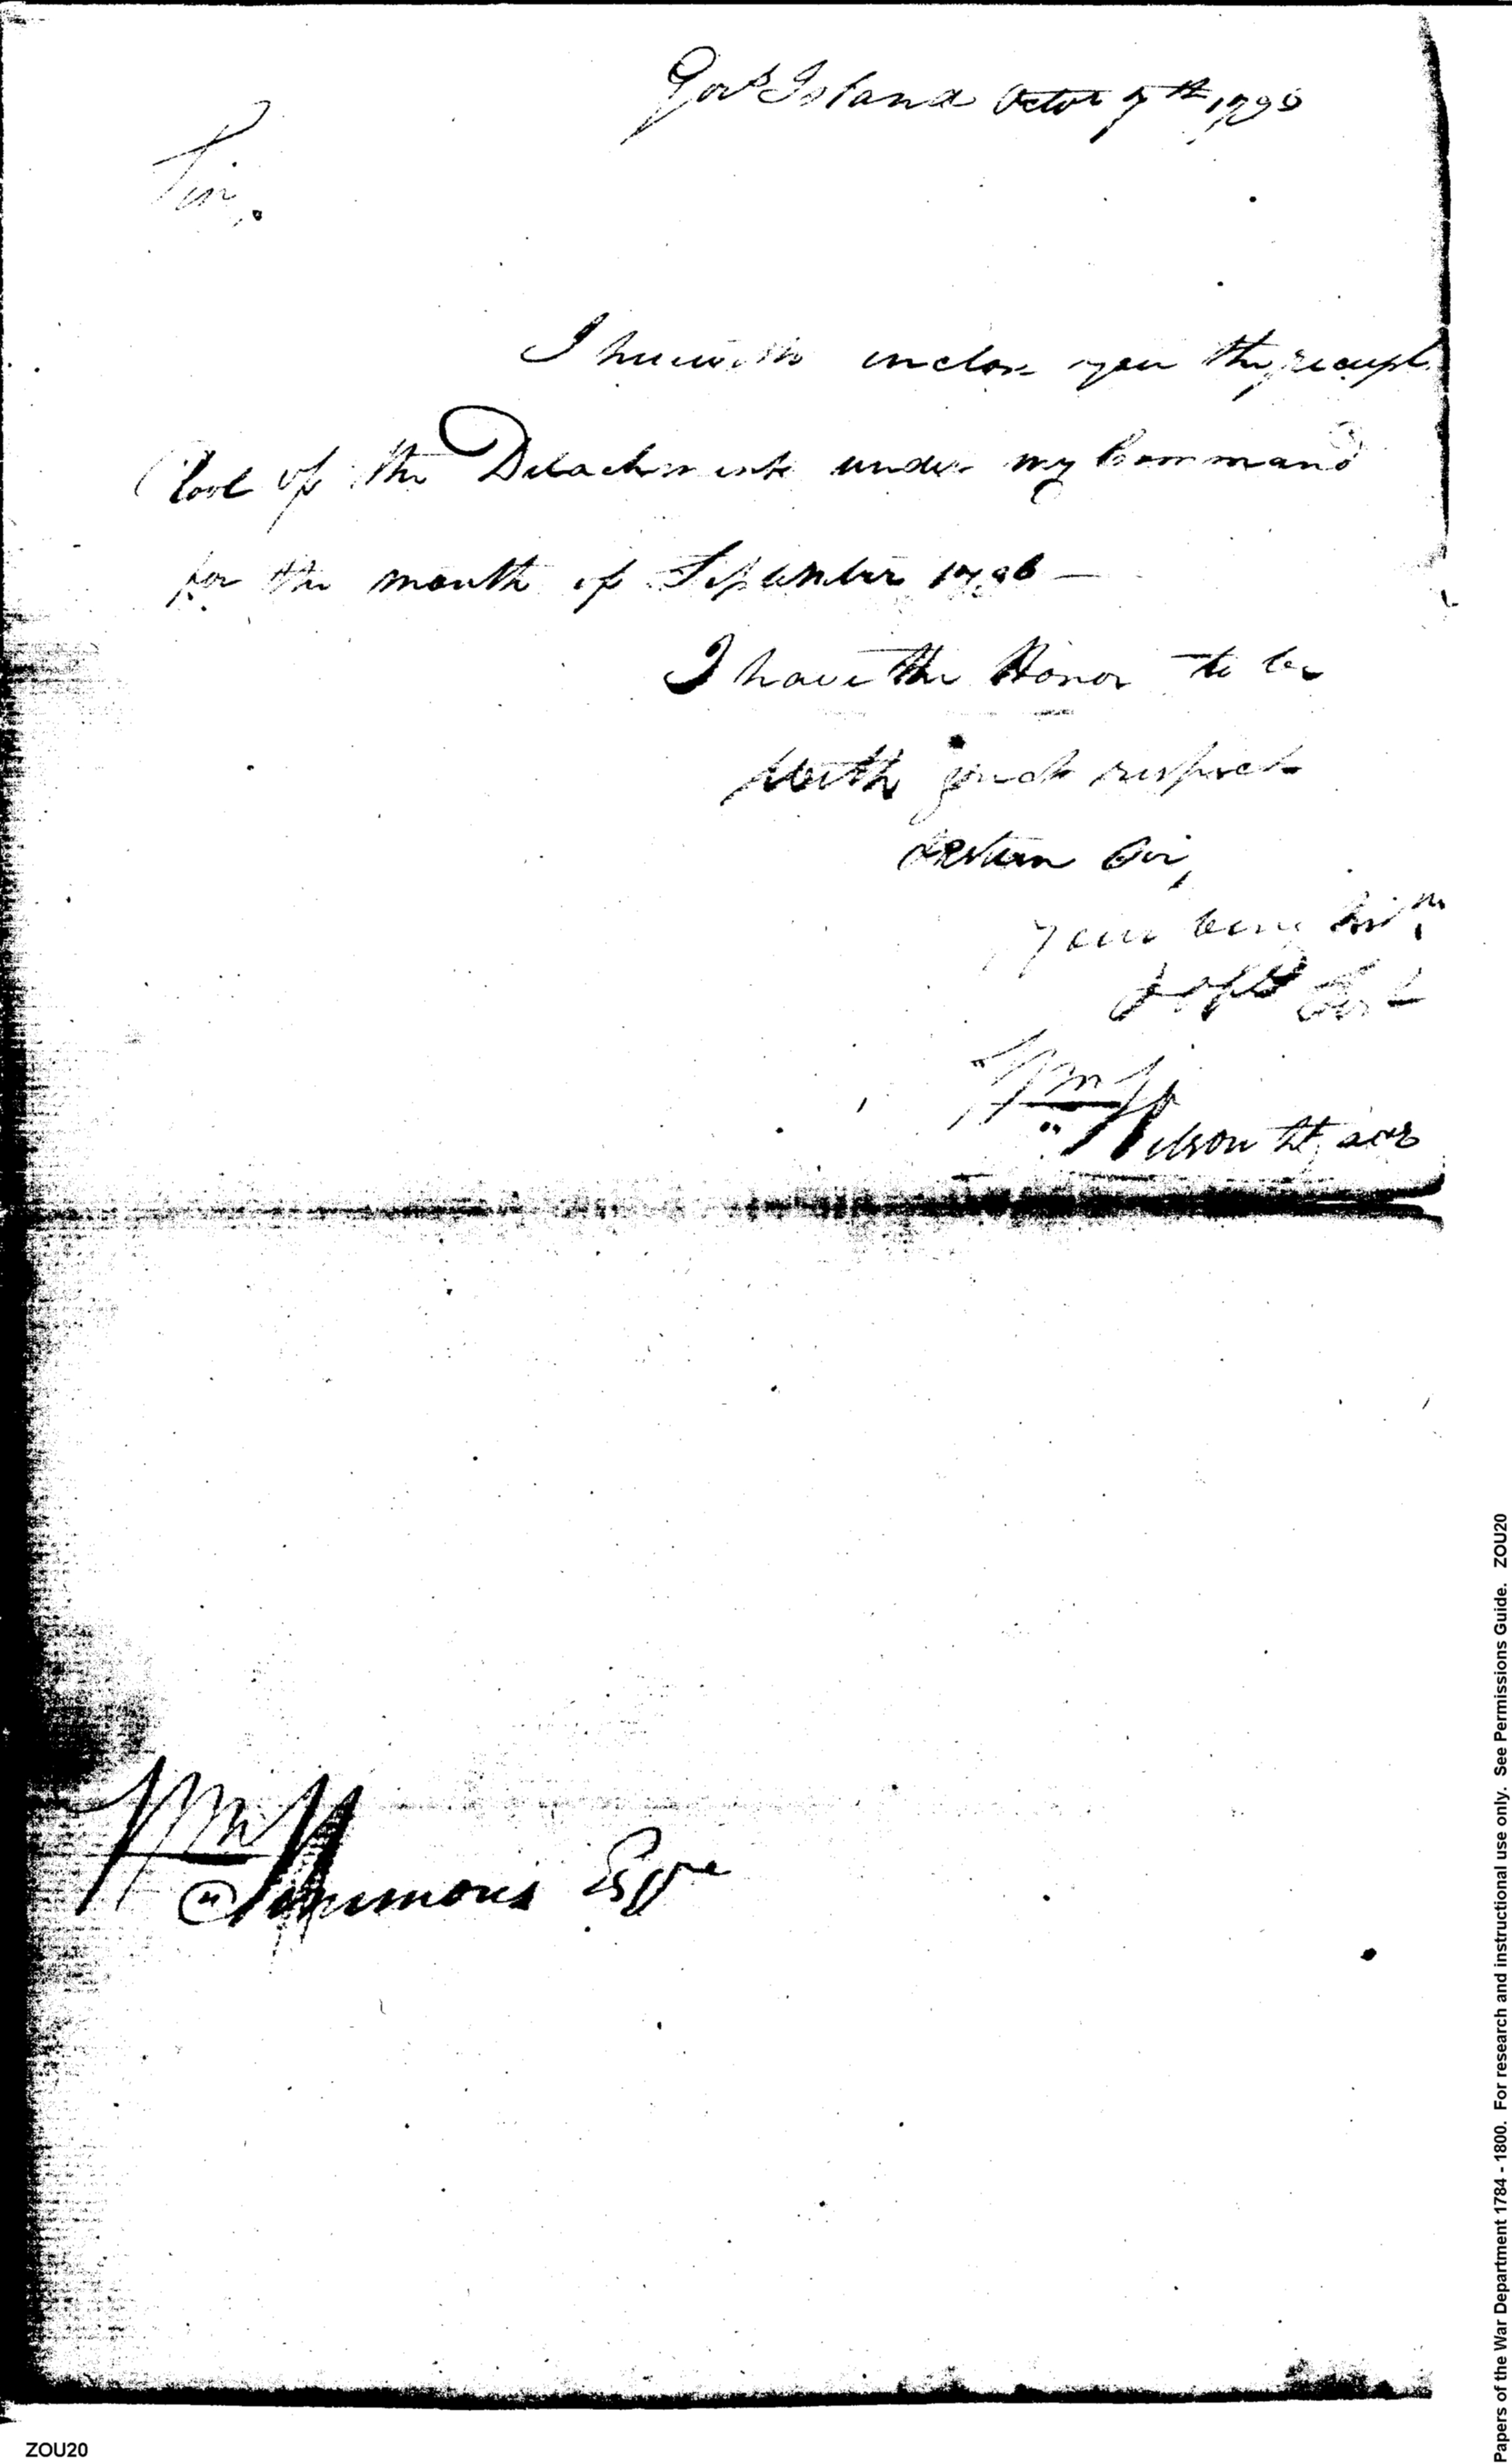 Govs Island Octor 7th 1796
Sir,
I herewith inclose you the receipt
Rool of the Detachments under my Command
for the month of September 1796 —
I have the Honor to be
With great respect
Esteem Sir,
your very
Wm Wilson Lt
Wm Simmons Esqre
Papers of the War Department 1784 - 1800. For research and instructional use only. See Permissions Guide. ZOU20
ZOU20